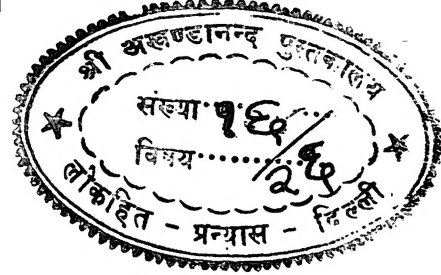 श्री अखण्डानन्द पुस्तकालय
संख्या १६/२६
विषय
लोकहित - प्रन्यास - दिल्ली